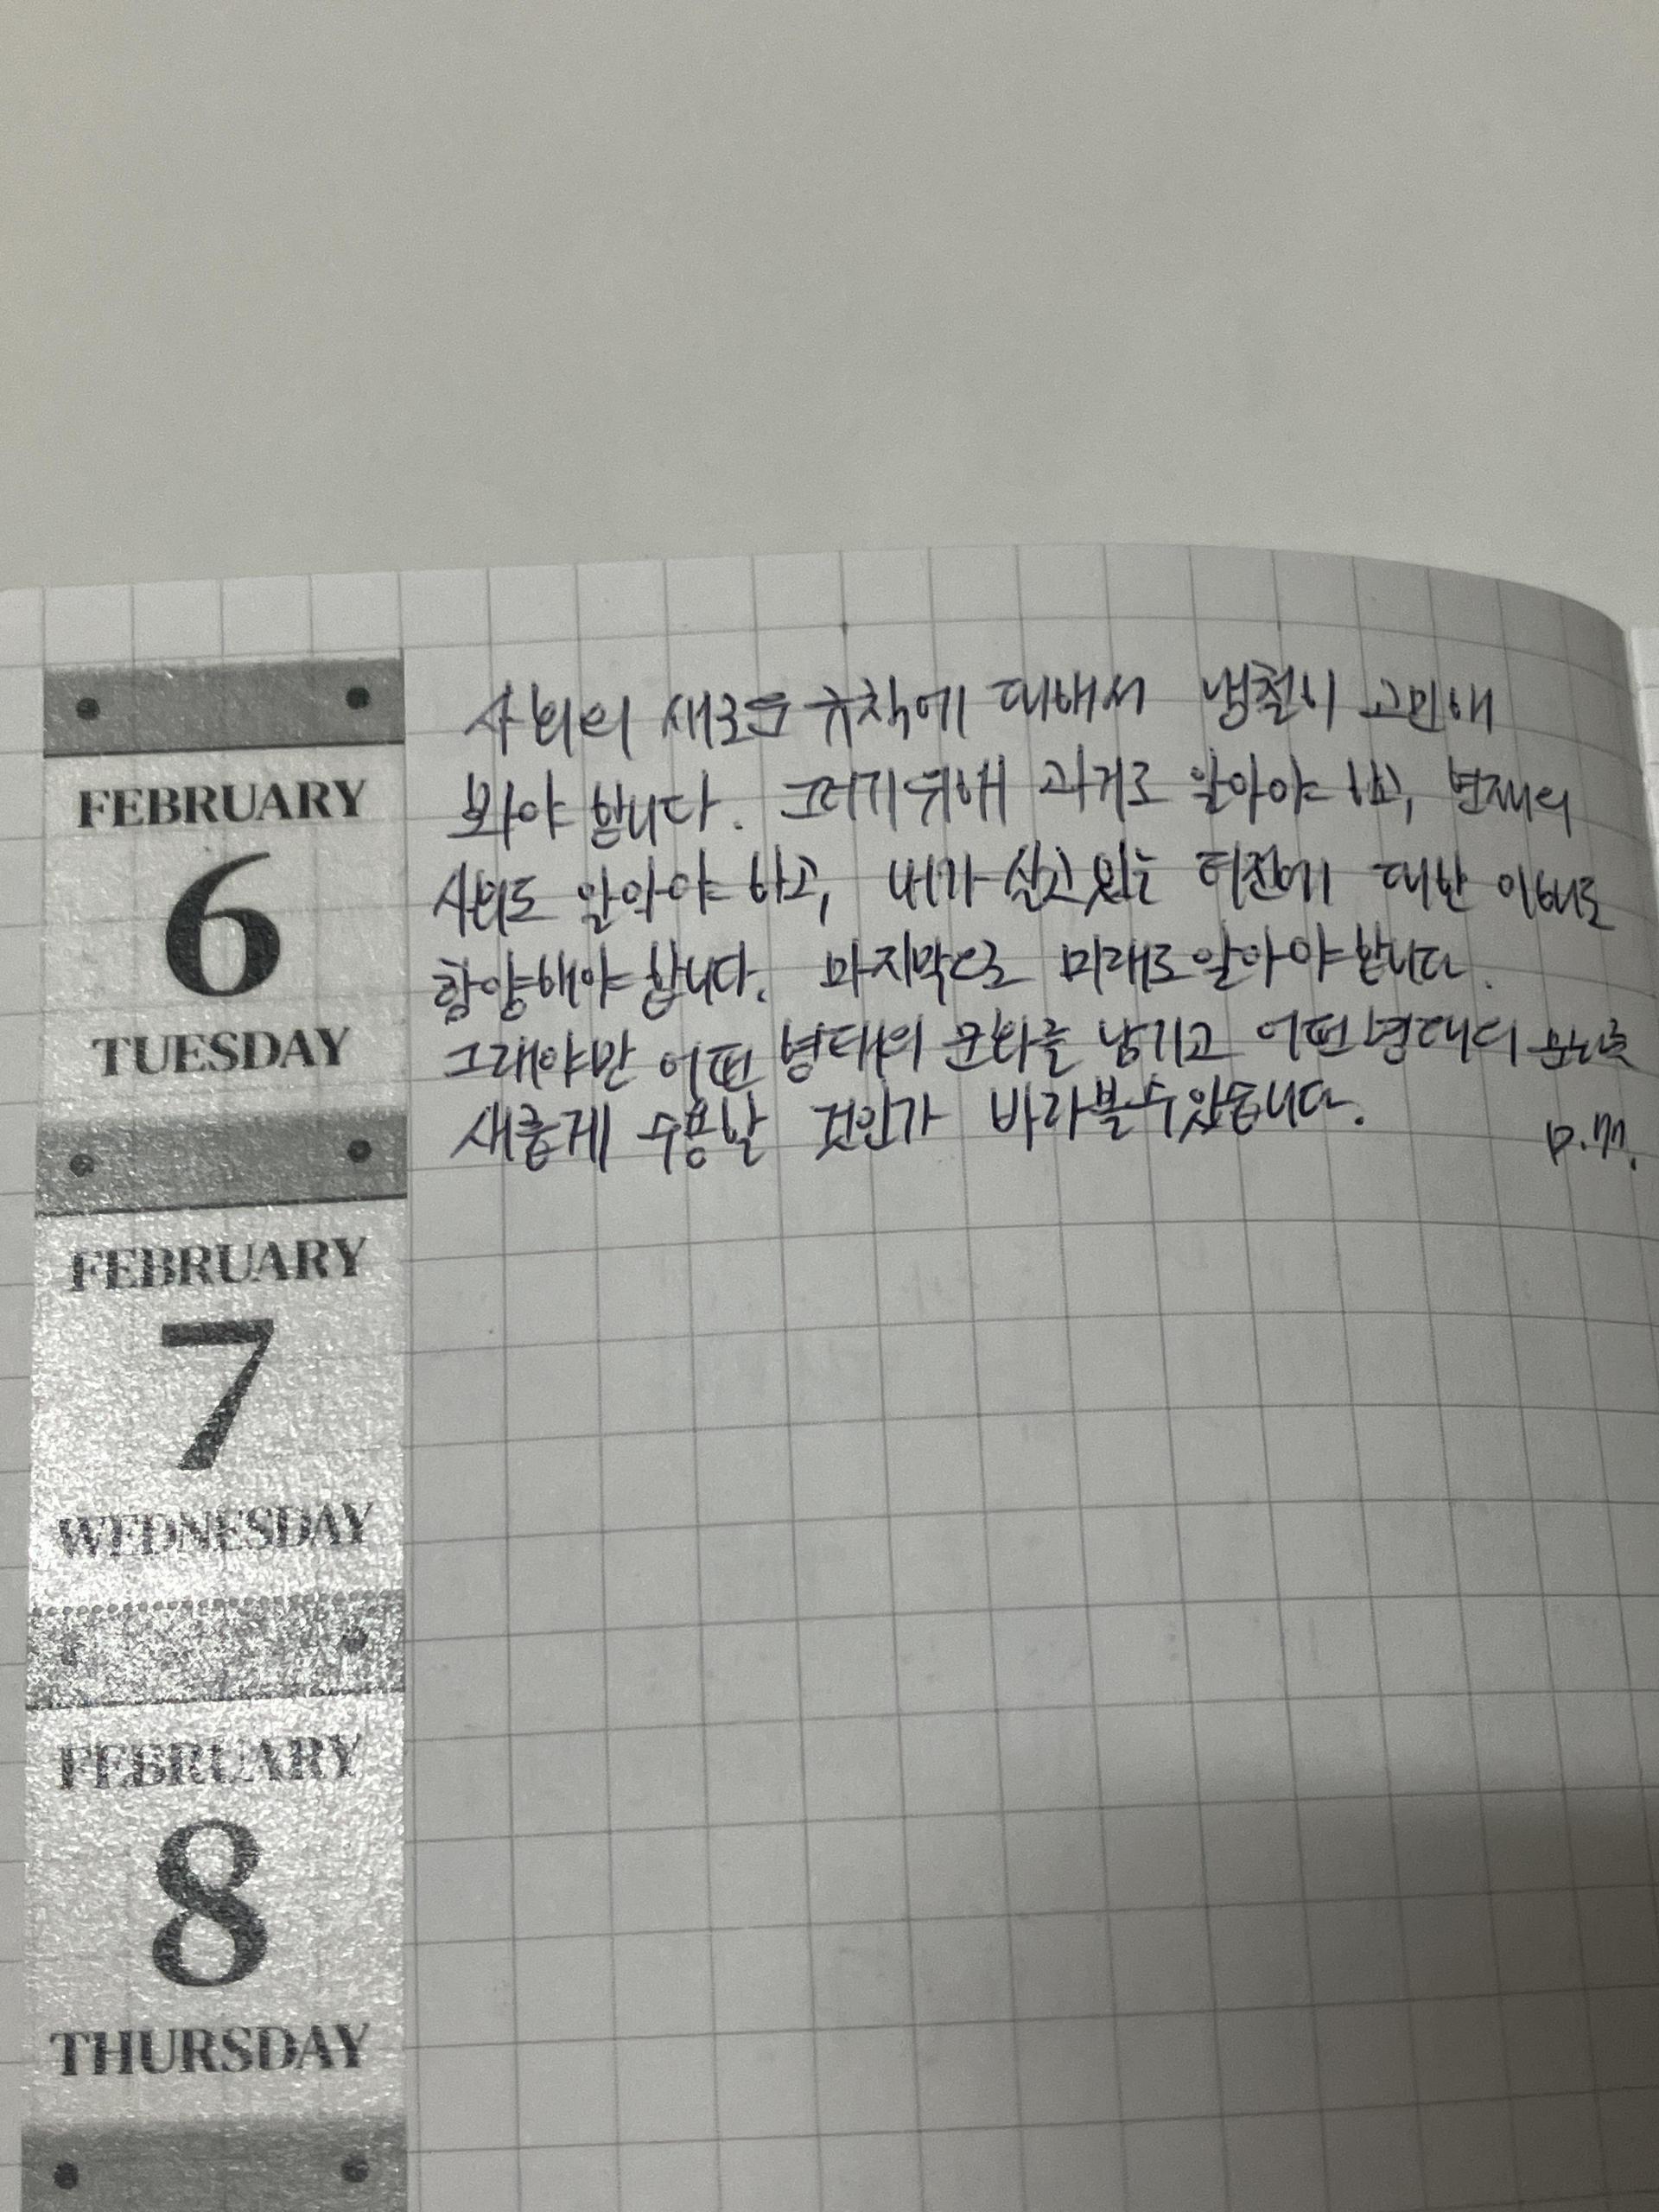 FEBRUARY
6
TUESDAY
사회의 새로운 규칙에 대해서 냉철히 고민해
봐야 합니다. 그러기위해 과거도 알아야 하고, 현재의
사회도 알아야 하고, 내가 살고있는 터전에 대한 이해도
함양해야 합니다. 마지막으로 미래도 알아야 합니다.
그래야만 어떤 형태의 문화를 남기고 어떤 형태의 문화를
새롭게 수용할 것인가 바라볼 수 있습니다.
D.M.
FEBRUARY
7
WEDNESDAY
FEBRUARY
8
THURSDAY